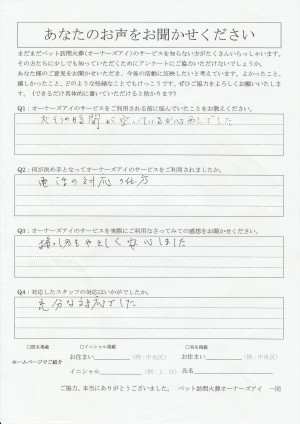 あなたのお声をお聞かせください
まだまだペット訪問火葬(オーナーズアイ)のサービスを知らない方がたくさんいらっしゃいます。
その方たちに少しでも知っていただくためにアンケートにご協力いただけないでしょうか。
あなた様のご意見をお聞かせいただき、今後の活動に反映したいと考えています。よかったこと、
嬉しかったこと、どのような些細なことでもけっこうです。ぜひご協力をよろしくお願いいたします。
(できるだけ具体的に書いていただけると助かります)
Q1:オーナーズアイのサービスをご利用される前に悩んでいたことをお教えください。
時間が空いているか心配でした
Q2:何が決め手となってオーナーズアイのサービスをご利用されましたか。
電話の対応の仕方
Q3:オーナーズアイのサービスを実際にご利用なさってみての感想をお聞かせください。
もやさしく安心しました
Q4:対応したスタッフの対応はいかがでしたか。
充分な対応でした
□匿名掲載 □イニシャル掲載 □実名掲載
ホームページでご紹介
お住まい (例:中央区) お住まい (例:中央区)
イニシャル (例:J.H) 氏名
ご協力、本当にありがとうございました。 ペット訪問火葬オーナーズアイ 一同